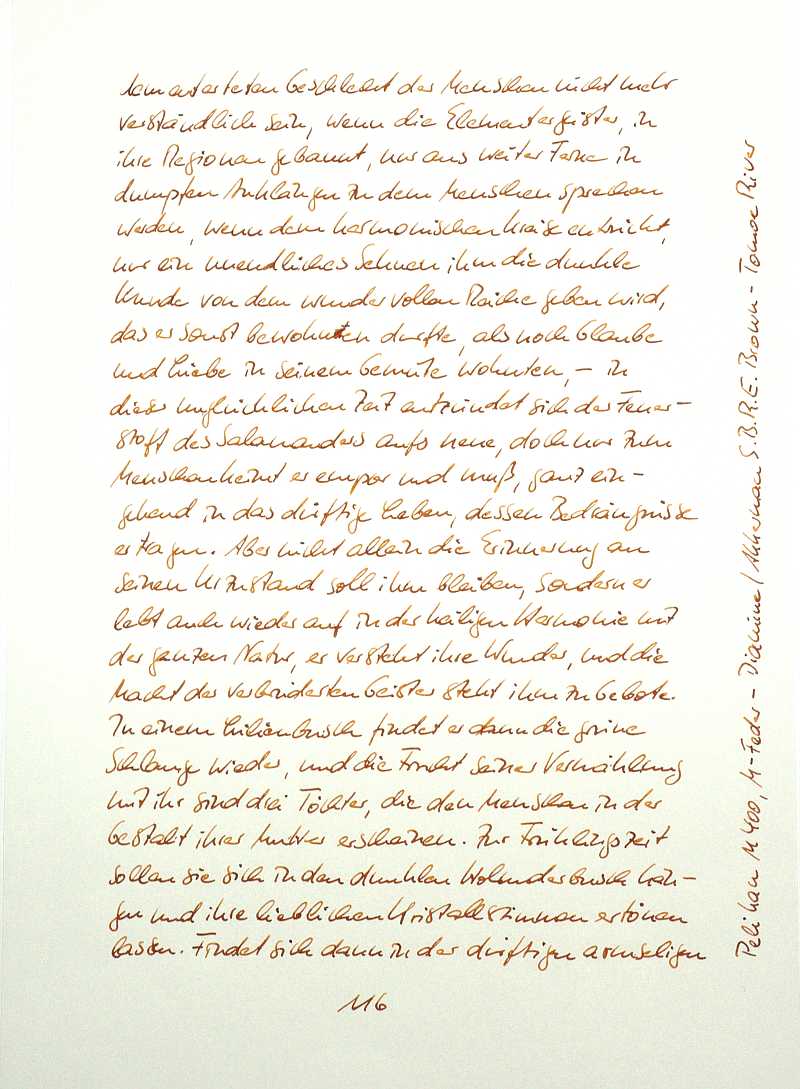 dem entarteten Geschlecht der Menschen nicht mehr
verständlich sein, wenn die Elementargeister, in
ihre Regionen gebannt, nur aus weiter Ferne in
dumpfen Anklängen zu dem Menschen sprechen
werden, wenn dem harmonischen Kreise entrückt,
nur ein unendliches Sehnen ihm die dunkle
Kunde von dem wundervollen Reiche geben wird,
das er sonst bewohnen durfte, als noch Glaube
und Liebe in seinem Gemüte wohnten, – in
dieser unglücklichen Zeit entzündet sich der Feuer-
stoff des Salamanders aufs neue, doch nur zum
Menschen keimt er empor und muß, ganz ein-
gehend in das dürftige Leben, dessen Bedrängnisse
ertragen. Aber nicht allein die Erinnerung an
seinen Urzustand soll ihm bleiben, sondern er
lebt auch wieder auf in der heiligen Harmonie mit
der ganzen Natur, er versteht ihre Wunder, und die
Macht der verbrüderten Geister steht ihm zu Gebote.
In einem Lilienbusch findet er dann die grüne
Schlange wieder, und die Frucht seiner Vermählung
mit ihr sind drei Töchter, die den Menschen in der
Gestalt ihrer Mutter erscheinen. Zur Frühlingszeit
sollen sie sich in den dunklen Holunderbusch hän-
gen und ihre lieblichen Kristallstimmen ertönen
lassen. Findet sich dann in der dürftigen armseligen
116
Pelikan M400, M-Feder – Diamine/Akkerman S.B.R.E. Brown – Tomoe River